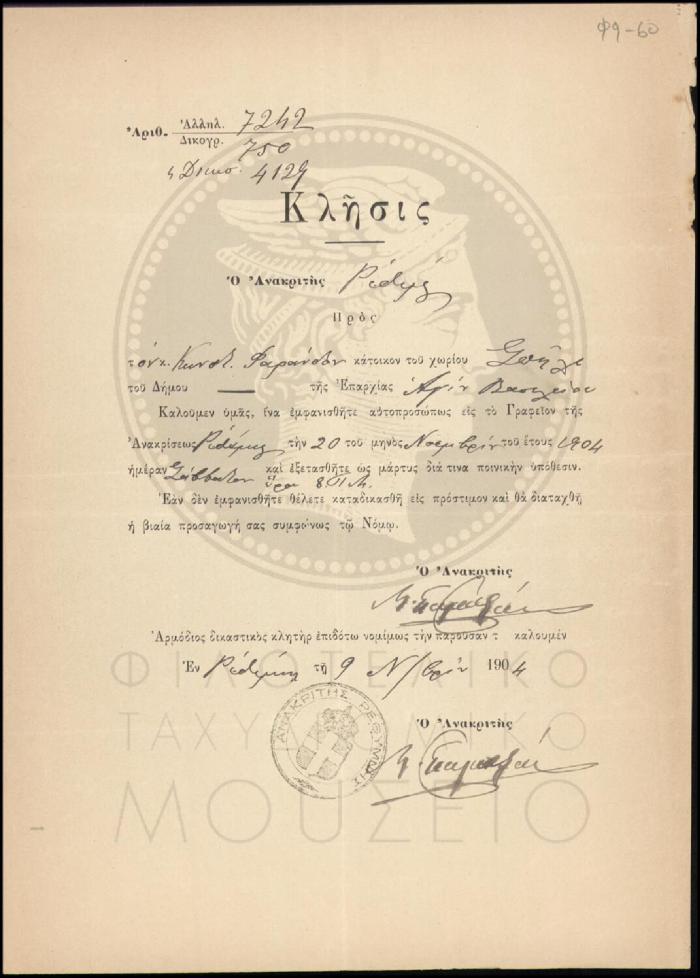 Φ9-60
Ἀριθ. Ἀλληλ. 7242
Δικογρ. 750
4129
Κλῆσις
Ὁ Ἀνακριτὴς Ρεθύμνης
Πρὸς
τὸν κ. Κωνστ. κάτοικον τοῦ χωρίου Σπήλι
τοῦ Δήμου — τῆς Ἐπαρχίας Ἁγίου Βασιλείου
Καλοῦμεν ὑμᾶς, ἵνα ἐμφανισθῆτε αὐτοπροσώπως εἰς τὸ Γραφεῖον τῆς
Ἀνακρίσεως Ρεθύμνης τὴν 20 τοῦ μηνὸς Νοεμβρίου τοῦ ἔτους 1904
ἡμέραν Σάββατον καὶ ἐξετασθῆτε ὡς μάρτυς διά τινα ποινικὴν ὑπόθεσιν.
ὥρα 8 π.μ.
Ἐὰν δὲν ἐμφανισθῆτε θέλετε καταδικασθῆ εἰς πρόστιμον καὶ θὰ διαταχθῆ
ἡ βιαία προσαγωγή σας συμφώνως τῷ Νόμῳ.
Ὁ Ἀνακριτὴς
Ἁρμόδιος δικαστικὸς κλητὴρ ἐπιδότω νομίμως τὴν παροῦσαν τ καλουμέν
Ἐν Ρεθύμνῃ τῇ 9 Ν/βρίου 1904
Ὁ Ἀνακριτὴς
ΑΝΑΚΡΙΤΗΣ ΡΕΘΥΜΝΗΣ
ΦΙΛΟΤΕΛΙΚΟ
ΤΑΧΥΔΡΟΜΙΚΟ
ΜΟΥΣΕΙΟ